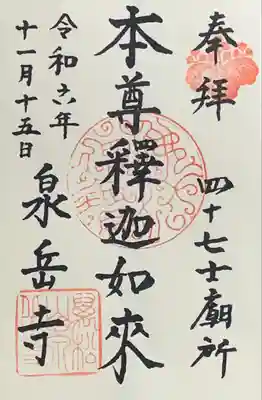 奉拝
四十七士廟所
本尊釋迦如來
令和六年
十一月十五日
泉岳寺